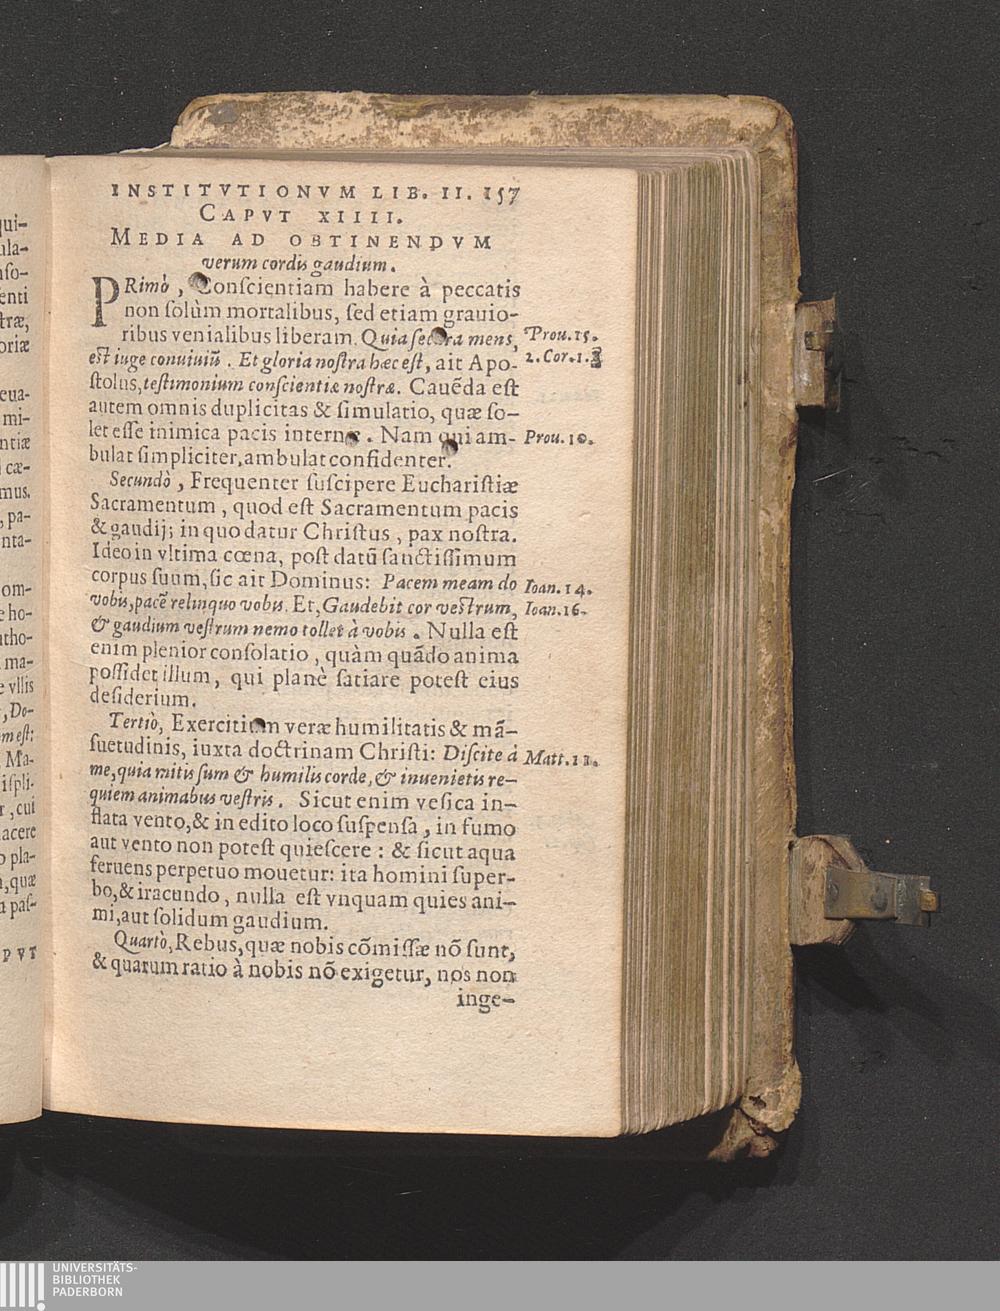 INSTITVTIONVM LIB. II. 157
CAPVT XIIII.
MEDIA AD OBTINENDVM
verum cordis gaudium.
PRimò, Conſcientiam habere à peccatis
non ſolùm mortalibus, ſed etiam grauio-
ribus venialibus liberam. Quia ſecura mens, Prou. 15.
eſt iuge conuiuiũ. Et gloria noſtra hæc eſt, ait Apo- 2. Cor. 1.
ſtolus, teſtimonium conſcientiæ noſtræ. Cauẽda eſt
autem omnis duplicitas & ſimulatio, quæ ſo-
let eſſe inimica pacis internæ. Nam qui am- Prou. 10.
bulat ſimpliciter, ambulat confidenter.
Secundò, Frequenter ſuſcipere Euchariſtiæ
Sacramentum, quod eſt Sacramentum pacis
& gaudij; in quo datur Chriſtus, pax noſtra.
Ideo in vltima cœna, poſt datũ ſanctiſſimum
corpus ſuum, ſic ait Dominus: Pacem meam do Ioan. 14.
vobis, pacẽ relinquo vobis. Et, Gaudebit cor veſtrum, Ioan. 16.
& gaudium veſtrum nemo tollet à vobis. Nulla eſt
enim plenior conſolatio, quàm quãdo anima
poſſidet illum, qui planè ſatiare poteſt eius
deſiderium.
Tertiò, Exercitium veræ humilitatis & mã-
ſuetudinis, iuxta doctrinam Chriſti: Diſcite à Matt. 11.
me, quia mitis ſum & humilis corde, & inuenietis re-
quiem animabus veſtris. Sicut enim veſica in-
flata vento, & in edito loco ſuſpenſa, in fumo
aut vento non poteſt quieſcere: & ſicut aqua
feruens perpetuo mouetur: ita homini ſuper-
bo, & iracundo, nulla eſt vnquam quies ani-
mi, aut ſolidum gaudium.
Quartò, Rebus, quæ nobis cõmiſſæ nõ ſunt,
& quarum ratio à nobis nõ exigetur, nos non
inge-
UNIVERSITÄTS-
BIBLIOTHEK
PADERBORN